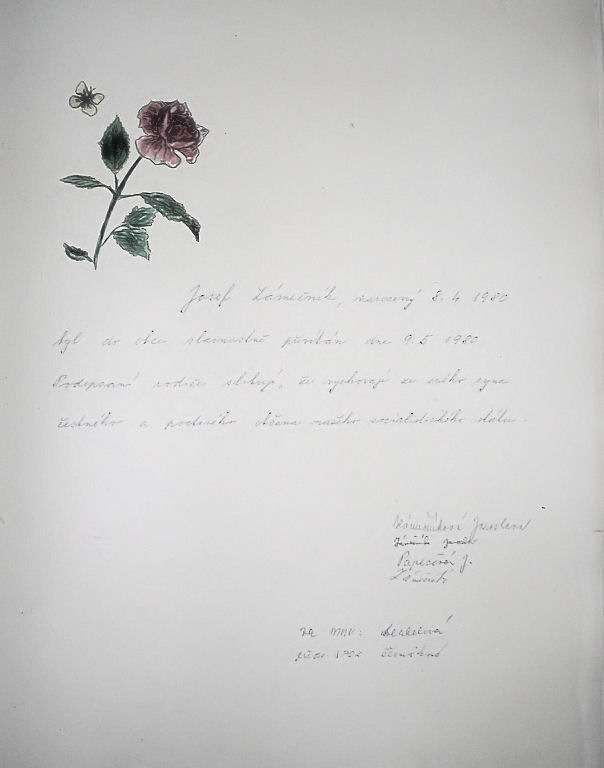 Josef Zámečník, narozený 8. 4 1980
byl do obce slavnostně přivítán dne 9. 5 1980
Podepsaní rodiče slibují, že vychovají ze svého syna
čestného a poctivého občana našeho socialistického státu.
Zámečníková Jaroslava
Zámečník
Papežová J.
Zámečník
za MNV: